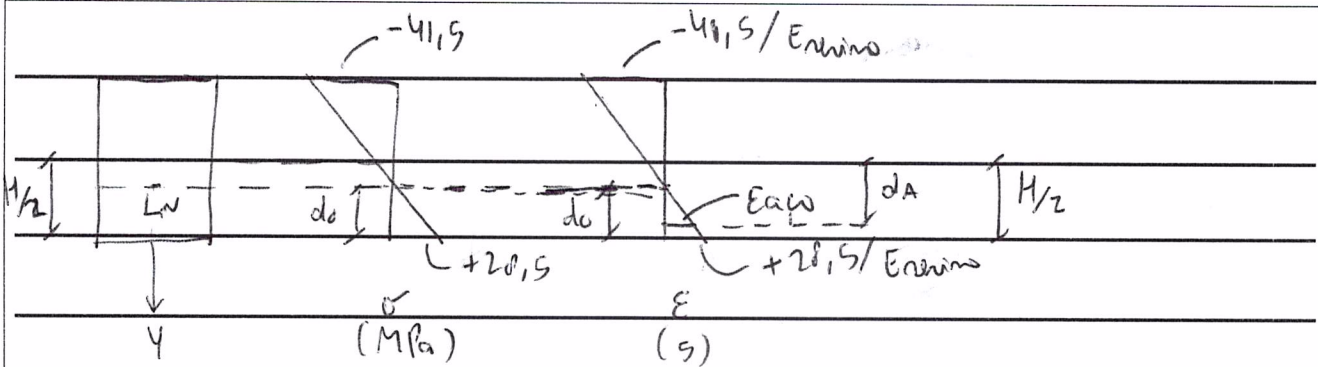 -41,5 -41,5/Eresina
H/2 LN do do Eaço dA H/2
+28,5 +28,5/Eresina
Y σ (MPa) ε (s)